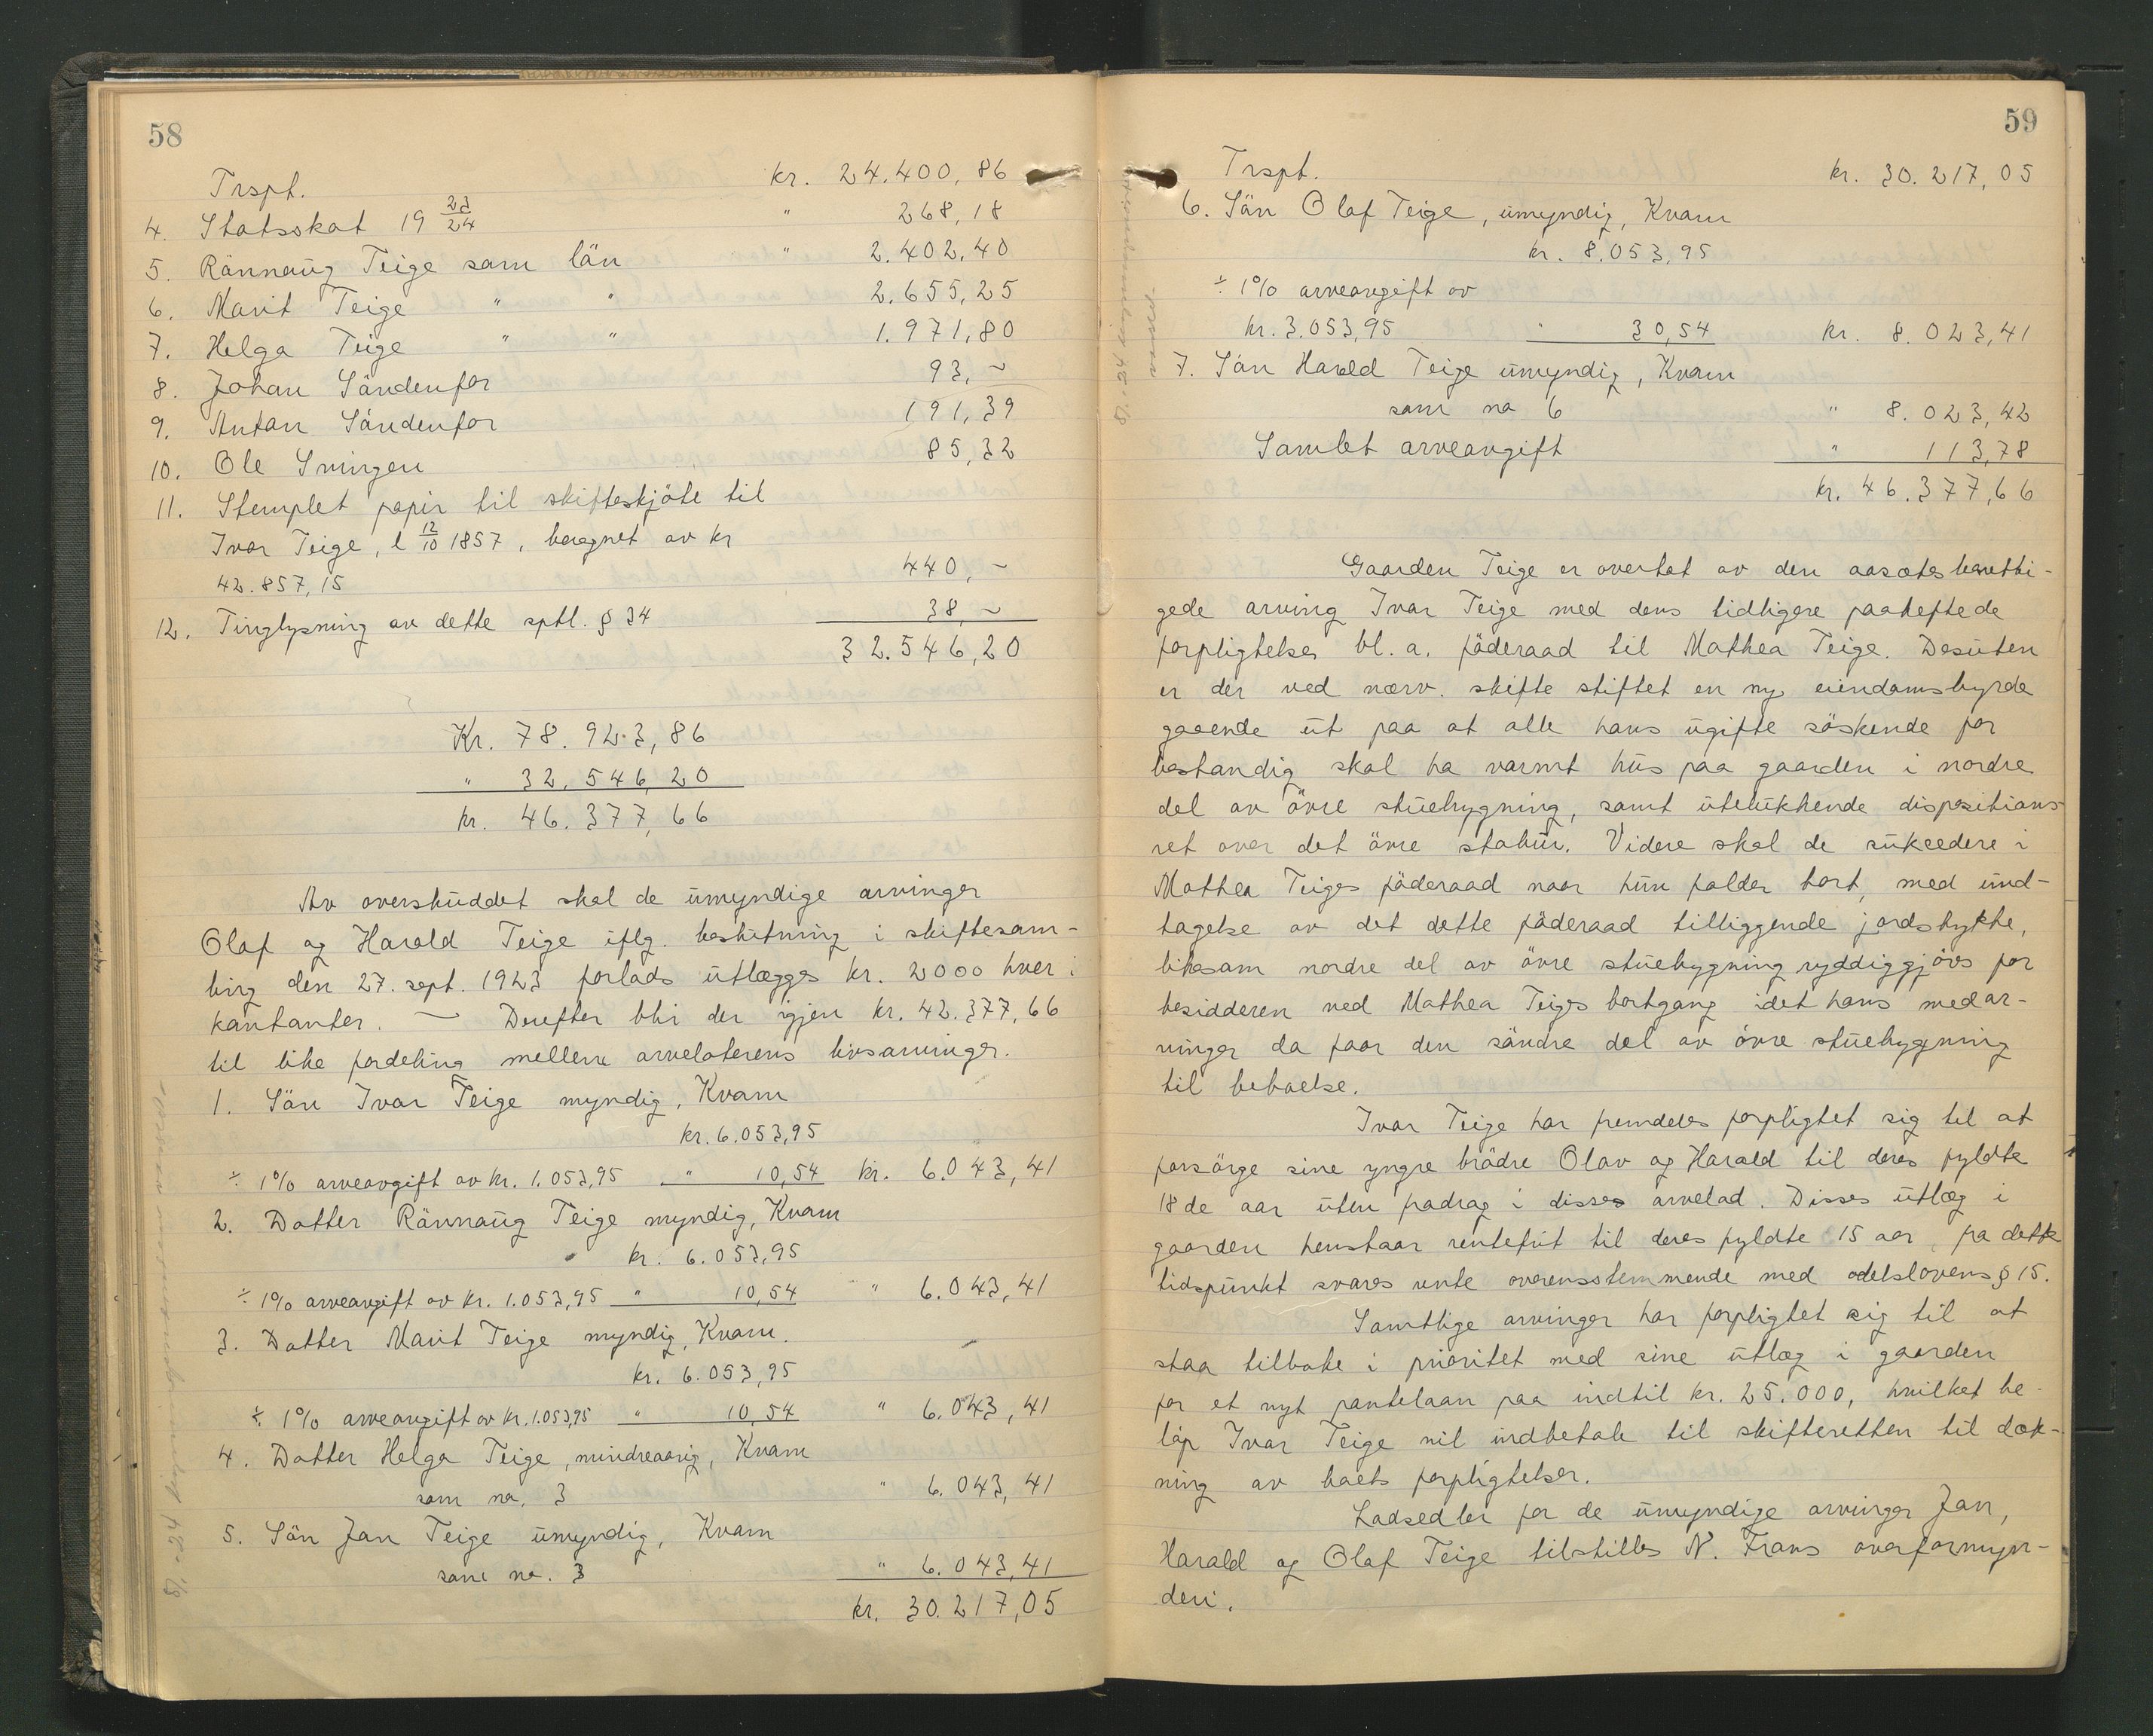 58
Trspt. kr. 24.400,86
4. Statsskat 19 23/24 " 268,18
5. Rönnaug Teige som lön " 2.402,40
6. Marit Teige " " 2.655,25
7. Helga Teige " " 1.971,80
8. Johan Söndenfor 93,-
9. Anton Söndenfor 191,39
10. Ole Svingen 85,32
11. Stemplet papir til skifteskjöte til
Ivar Teige, l 12/10 1857, beregnet av kr
42.857,15 440,-
12. Tinglysning av dette sptl. § 34 38,-
32.546,20
Kr. 78.923,86
" 32.546,20
kr. 46.377,66
Av overskuddet skal de umyndige arvinger
Olaf og Harald Teige iflg. beslutning i skiftesam-
ling den 27. sept. 1923 forlods utlægges kr. 2000 hver i
kontanter. — Derefter blir der igjen kr. 42.377,66
til like fordeling mellem arvelaterens livsarvinger.
1. Sön Ivar Teige myndig, Kvam
kr. 6.053,95
÷ 1% arveavgift av kr. 1.053,95 " 10,54 kr. 6.043,41
2. Datter Rönnaug Teige myndig, Kvam
kr. 6.053,95
÷ 1% arveavgift av kr. 1.053,95 " 10,54 " 6.043,41
3. Datter Marit Teige myndig, Kvam.
kr. 6.053,95
÷ 1% arveavgift av kr. 1.053,95 " 10,54 " 6.043,41
4. Datter Helga Teige, mindreaarig, Kvam
som no. 3 " 6.043,41
5. Sön Jon Teige umyndig, Kvam
som no. 3 " 6.043,41
kr. 30.217,05
59
Trspt. kr. 30.217,05
6. Sön Olaf Teige, umyndig, Kvam
kr. 8.053,95
÷ 1% arveavgift av
kr. 3.053,95 " 30,54 kr. 8.023,41
7. Sön Harald Teige umyndig, Kvam
som no 6 " 8.023,42
Samlet arveavgift " 113,78
kr. 46.377,66
Gaarden Teige er overtat av den aasætesberetti-
gede arving Ivar Teige med dens tidligere paaheftede
forpligtelser bl. a. föderaad til Mathea Teige. Desuten
er der ved nærv. skifte stiftet en ny eiendomsbyrde
gaaende ut paa at alle hans ugifte söskende for
bestandig skal ha varmt hus paa gaarden i nordre
del av övre stuebygning, samt utelukkende dispositions-
ret over det övre stabur. Videre skal de sukcedere i
Mathea Teiges föderaad naar hun falder bort, med und-
tagelse av det dette föderaad tilliggende jordstykke,
likesom nordre del av övre stuebygning ryddiggjöres for
besidderen ved Mathea Teiges bortgang idet hans medar-
vinger da faar den söndre del av övre stuebygning
til beboelse.
Ivar Teige har fremdeles forpligtet sig til at
forsörge sine yngre brödre Olav og Harald til deres fyldte
18 de aar uten fradrag i disses arvelod. Disses utlæg i
gaarden henstaar rentefrit til deres fyldte 15 aar, fra dette
tidspunkt svares rente overensstemmende med odelslovens § 15.
Samtlige arvinger har forpligtet sig til at
staa tilbake i prioritet med sine utlæg i gaarden
for et nyt pantelaan paa indtil kr. 25.000, hvilket be-
löp Ivar Teige vil indbetale til skifteretten til dæk-
ning av boets forpligtelser.
Lodsedler for de umyndige arvinger Jon,
Harald og Olaf Teige tilstilles N. Frons overformyn-
deri.